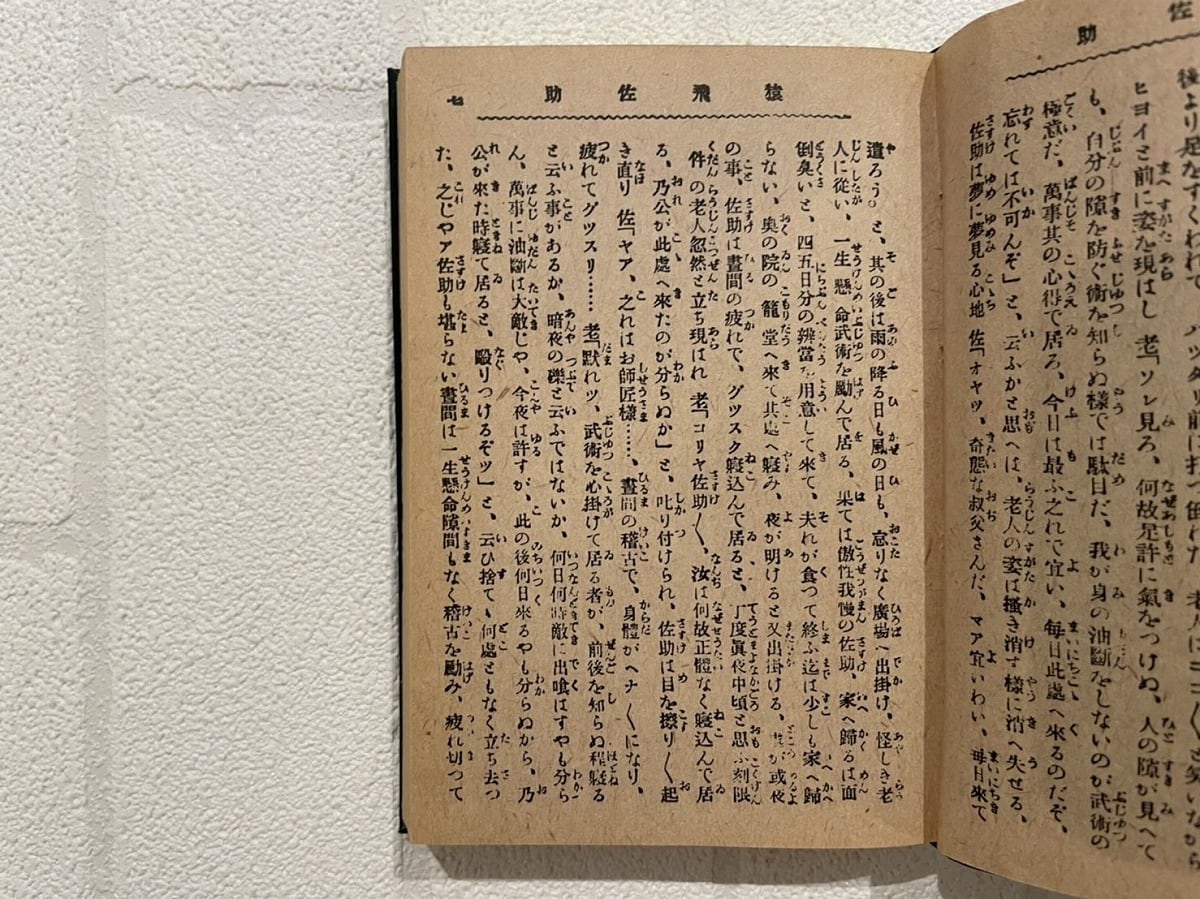 佐助
後より足をすくわれて
ヒヨイと前に姿を現はし 老「ソレ見ろ、何故足許に氣をつけぬ、人の隙が見へて
も、自分の隙を防ぐ術を知らぬ樣では駄目だ、我が身の油斷をしないのが武術の
極意だ、萬事其の心得で居ろ、今日は最ふ之れで宜い、每日此處へ來るのだぞ、
忘れては不可んぞ」と、云ふかと思へば、老人の姿は搔き消す樣に消へ失せる、
佐助は夢に夢見る心地 佐「オヤツ、奇態な叔父さんだ、マア宜いわい、每日來て
猿飛佐助 七
遣ろう。と、其の後は雨の降る日も風の日も、怠りなく廣場へ出掛け、怪しき老
人に從い、一生懸命武術を勵んで居る、果ては傲性我慢の佐助、家へ歸るは面
倒臭いと、四五日分の辨當を用意して來て、夫れが食つて終ふ迄は少しも家へ歸
らない、奧の院の籠堂へ來て其處へ寢み、夜が明けると又出掛ける、或夜
の事、佐助は晝間の疲れで、グツスク寢込んで居ると、丁度眞夜中頃と思ふ刻限
件の老人忽然と立ち現はれ 老「コリヤ佐助〱、汝は何故正體なく寢込んで居
る、乃公が此處へ來たのが分らぬか」と、叱り付けられ、佐助は目を擦り〱起
き直り 佐「ヤア、之れはお師匠樣……、晝間の稽古で、身體がヘナ〱になり、
疲れてグツスリ…… 老「默れツ、武術を心掛けて居る者が、前後を知らぬ程寢る
と云ふ事があるか、暗夜の礫と云ふではないか、何日何時敵に出喰はすやも分ら
ん、萬事に油斷は大敵じや、今夜は許すが、此の後何日來るやも分らぬから、乃
公が來た時寢て居ると、毆りつけるぞツ」と、云ひ捨てゝ何處ともなく立ち去つ
た、之じやア佐助も堪らない晝間は一生懸命隙間もなく稽古を勵み、疲れ切つて